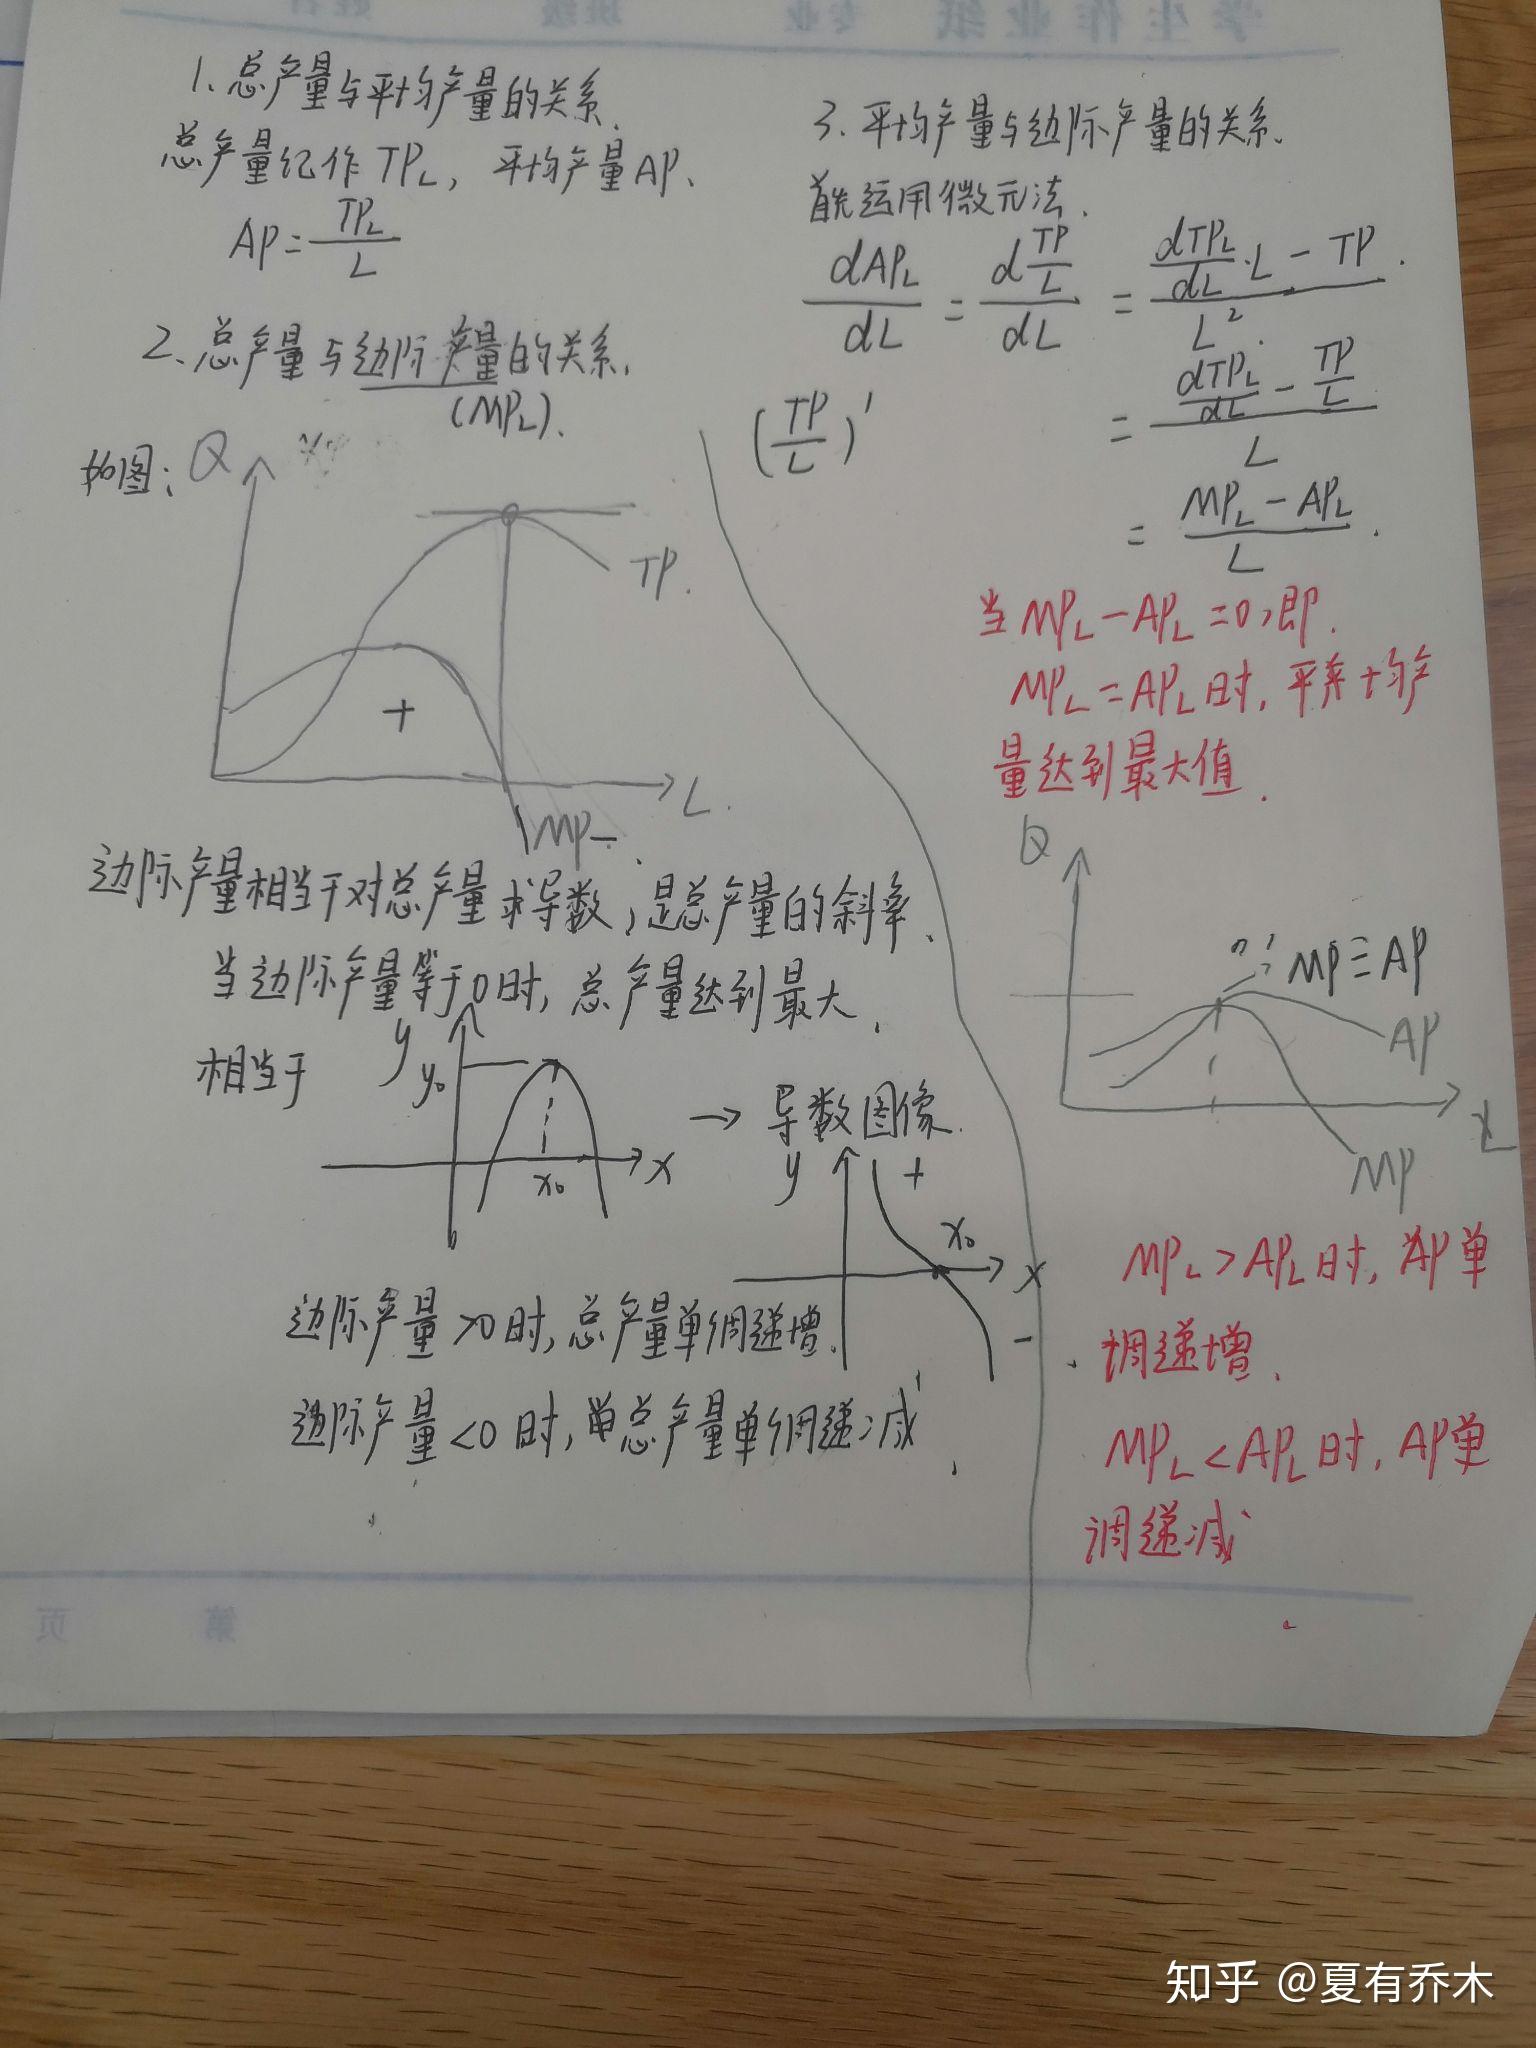 学生作业纸 专业 班级 姓名
1. 总产量与平均产量的关系.
总产量纪作 TP_L, 平均产量 AP、
AP = TP_L / L
2、总产量与边际产量的关系.
(MP_L).
如图: Q
TP.
+
L.
MP -
边际产量相当于对总产量求导数, 是总产量的斜率、
当边际产量等于0时, 总产量达到最大,
相当于 y y₀ x₀ x → 导数图像.
y + x₀ x -
边际产量>0时, 总产量单调递增.
边际产量<0时, 总产量单调递减
3. 平均产量与边际产量的关系.
首先运用微元法.
dAP_L / dL = d(TP/L) / dL = (dTP_L/dL · L - TP) / L².
(TP/L)' = (dTP_L/dL - TP/L) / L
= (MP_L - AP_L) / L.
当 MP_L - AP_L = 0, 即.
MP_L = AP_L 时, 平均产
量达到最大值.
Q
MP≡AP
AP
L
MP
MP_L > AP_L 时, AP单
调递增.
MP_L < AP_L 时, AP单
调递减
第 页
知乎 @夏有乔木